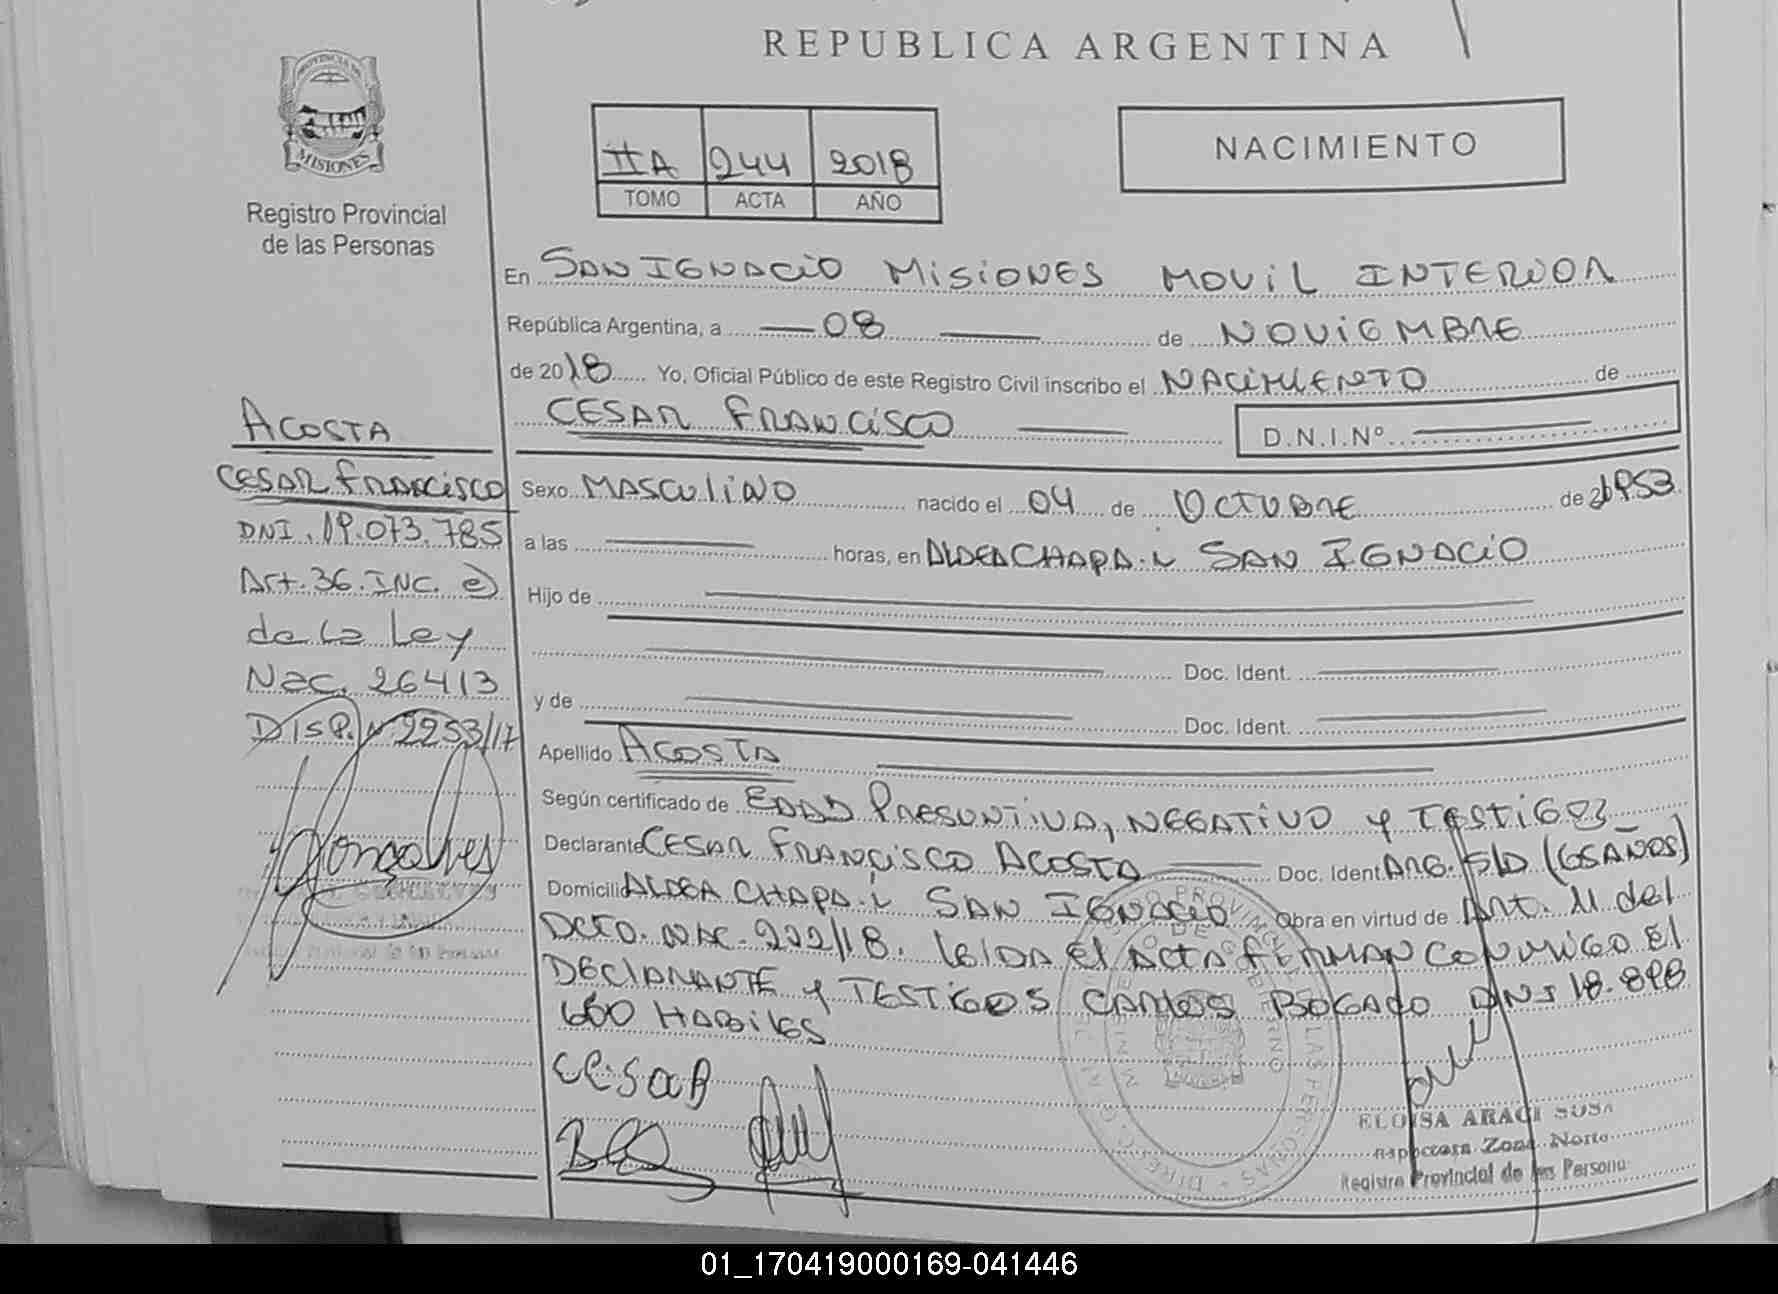 REPUBLICA ARGENTINA
PROVINCIA DE
MISIONES
Registro Provincial
de las Personas
IIA 244 2018
TOMO ACTA AÑO
NACIMIENTO
En SAN IGNACIO MISIONES MOVIL INTERIOR
República Argentina, a 08 de NOVIEMBRE
de 2018 Yo, Oficial Público de este Registro Civil inscribo el NACIMIENTO de
CESAR FRANCISCO D.N.I.Nº
Sexo MASCULINO nacido el 04 de OCTUBRE de 1953
a las horas, en ALDEA CHAPA-I SAN IGNACIO
Hijo de
Doc. Ident.
y de
Doc. Ident.
Apellido ACOSTA
Según certificado de EDAD PRESUNTIVA, NEGATIVO y TESTIGOS
Declarante CESAR FRANCISCO ACOSTA Doc. Ident ARG. S/D (65 AÑOS)
Domicilio ALDEA CHAPA-I SAN IGNACIO Obra en virtud de Art. 11 del
DCTO. NAC. 202/18. leIDA El ACTA FIRMAN CONMIGO El
DEClARANTE y TESTIGOS CARLOS BOGADO DNI 18.898
660 HABILES
CESAR
ELOISA ARACI SOSA
Inspectora Zona Norte
Registro Provincial de las Personas
ACOSTA
CESAR FRANCISCO
DNI. 19.073.785
Art. 36. INC. e)
de La Ley
Nac. 26413
DISP. N 2253/17
01_170419000169-041446